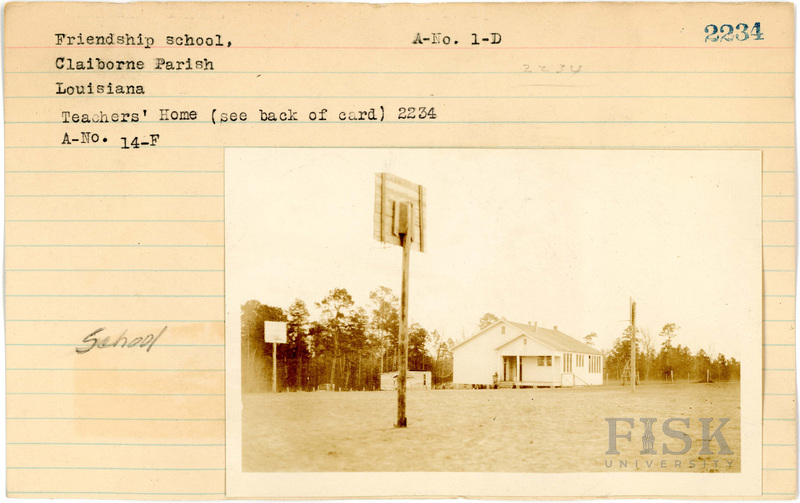 Friendship school, A-No. 1-D 2234
Claiborne Parish 2234
Louisiana
Teachers' Home (see back of card) 2234
A-No. 14-F
School
FISK
UNIVERSITY